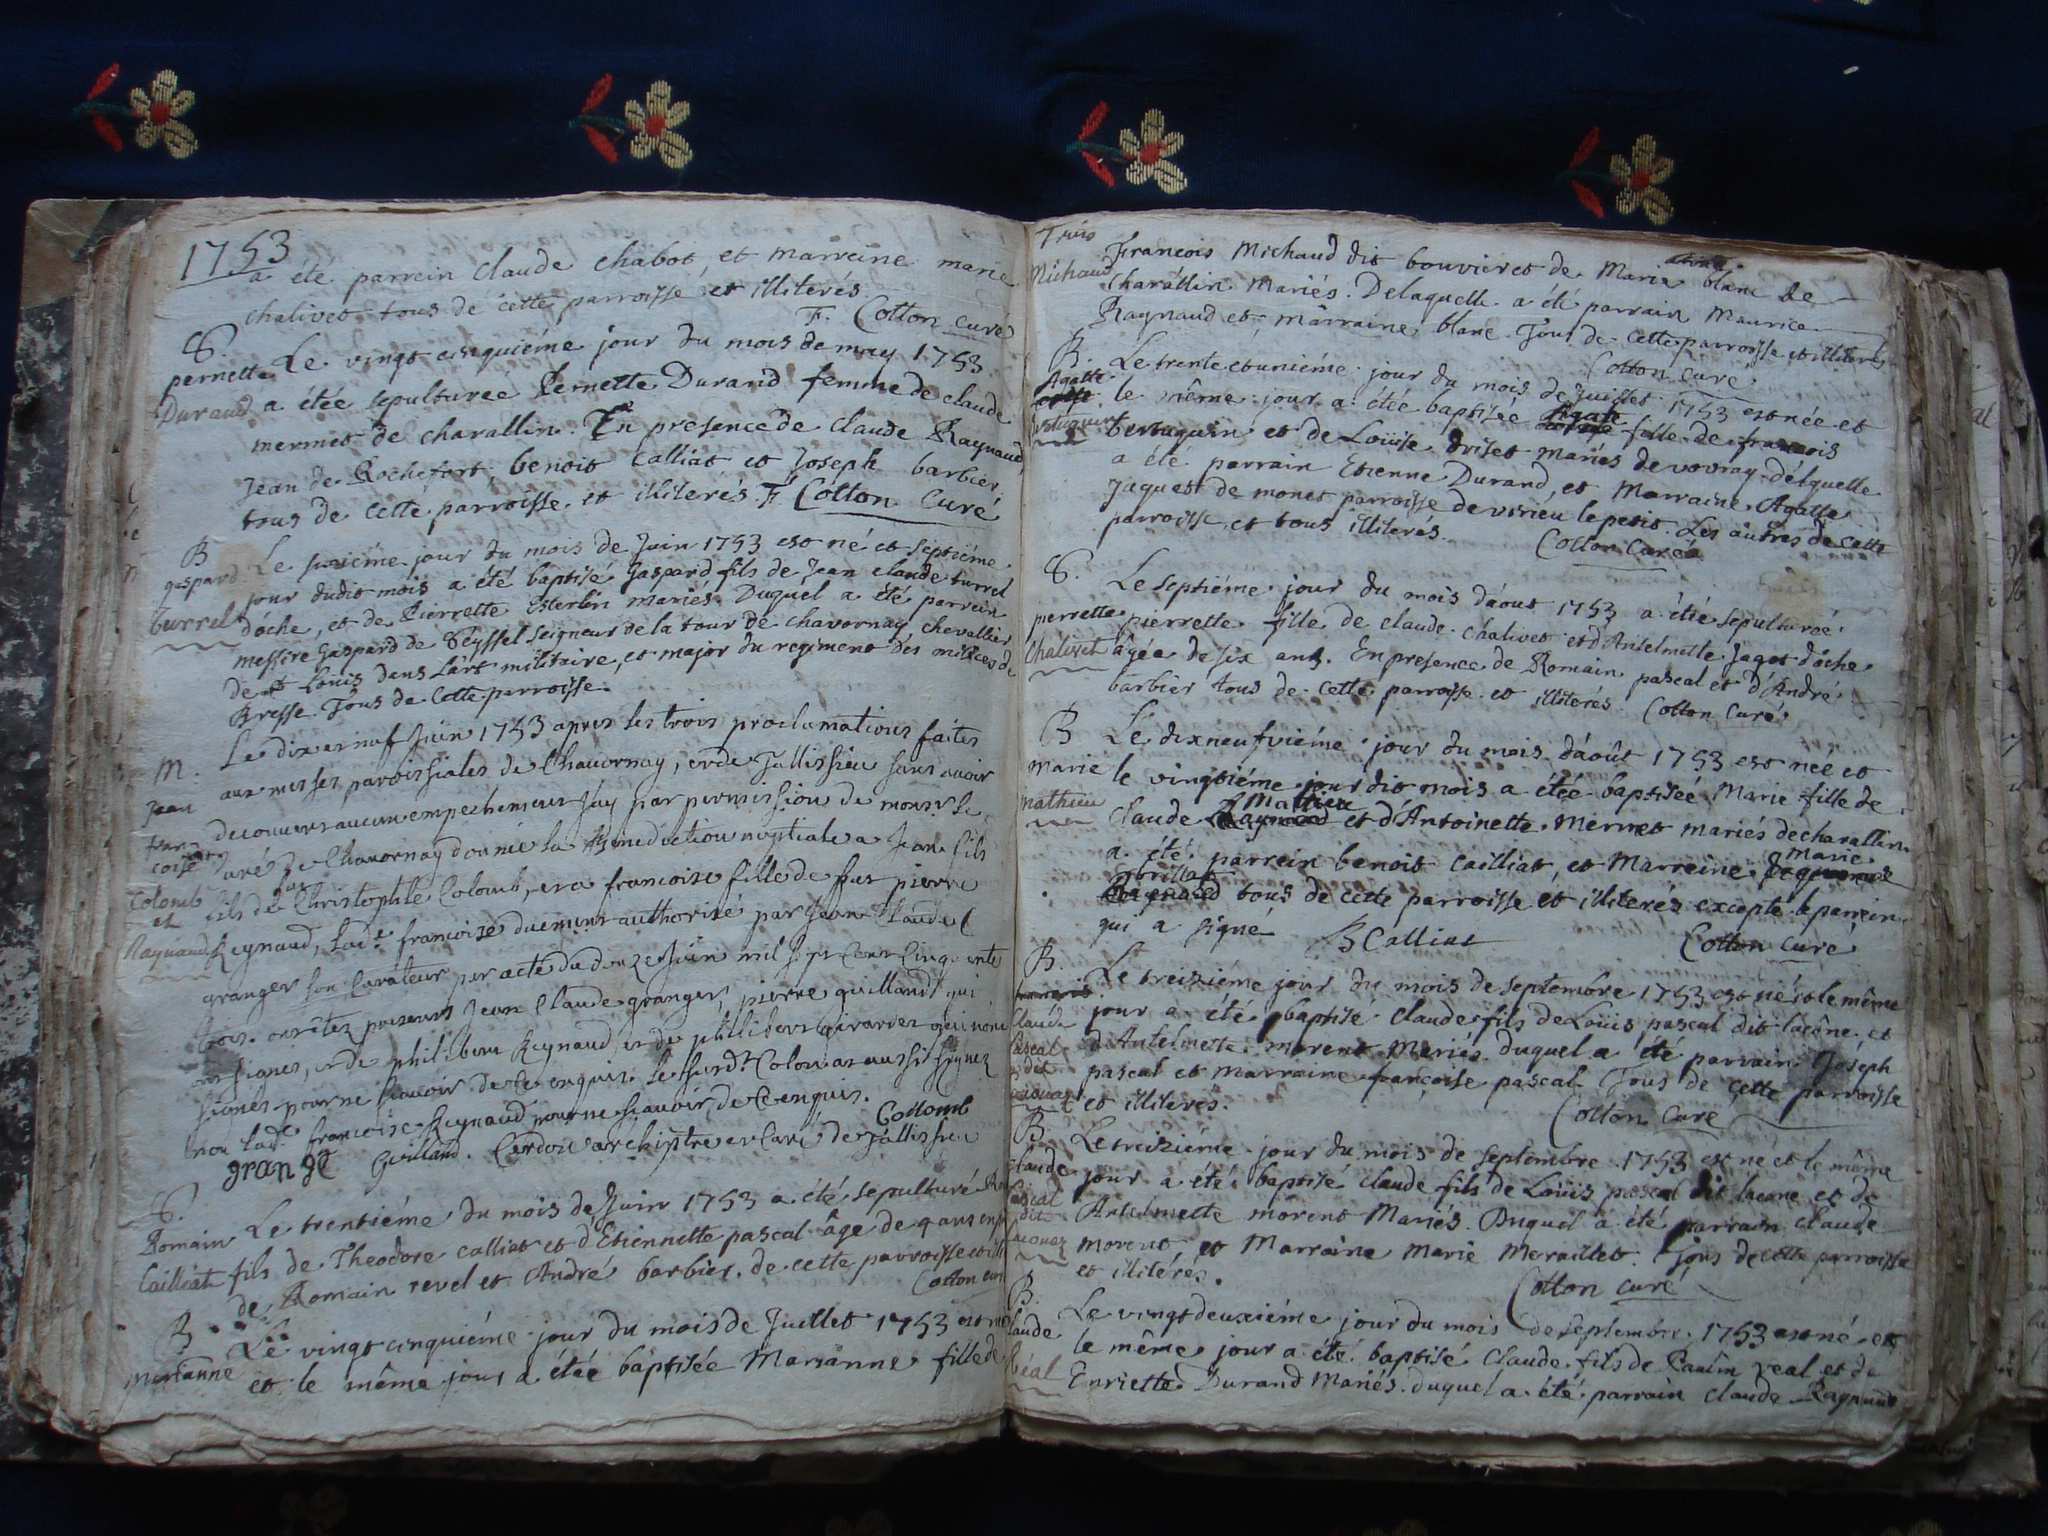 1753
a été parrein claude chabot, et marreine marie
chalivet tous de cette parroisse, et illiterés.
F. Cotton curé
S.
pernette
Durand
Le vingt cinquiéme jour du mois de may 1753
a étée sepulturée Pernette Durand femme de claude
mermet de charallin. En presence de Claude Raynaud,
Jean de Rochefort, benoit Calliat et Joseph barbier,
tous de cette parroisse, et illiterés. F. Cotton Curé
B
gaspard
turrel
Le sixiéme jour du mois de Juin 1753 est né et septiéme
jour dudit mois a été baptisé gaspard fils de Jean claude turrel
doche, et de Pierrette Esterlin mariés. Duquel a été parrein
messire gaspard de Seyssel seigneur de la tour de chavornay, chevallier
de st Louis dans Lart militaire, et major du regiment des milices de
Bresse. Tous de Cette parroisse.
M.
Jean
fran
coise
Colomb
et
Raynaud
Le dix et neuf Juin 1753 apres les trois proclamations faites
aux messes paroissiales de Chavornay, et de Jallissieu sans avoir
decouvert aucun empechement J'ay par permission de monsr le
Curé de Chavornay donné la Benediction nuptiale a Jean fils
fils de feu Christophle Colomb, et a francoise fille de feu pierre
Reynaud, lade francoise duement authorisé par Jean Claude
granger son Curateur par acte du douze Juin mil sept Cent Cinquante
trois. ont étez presents Jean Claude granger, pierre guilland qui
ont signes, et de philibert Reynaud, et de philibert girardet qui nont
signes pour ne scavoir de ce enquis. le surdt Colomb at aussi signez
non lade francoise Reynaud pour ne scavoir de Ce enquis.
Collomb
grange Guilland. Cardon archiptre et Curé de Jallissieu
S.
Romain
Cailliat
Le trentiéme du mois de Juin 1753 a été sepulturé
fils de Theodore calliat et d'Etiennette pascal âge de 4 ans
de Romain revel et André barbier. de cette parroisse
Cotton curé
B
Marianne
Le vingt cinquiéme jour du mois de Juillet 1753 est née
et le même jour a étée baptisée Marianne fille de
Michaud
Francois Michaud dit bouvier et de Marie blanc de
Charallin Mariés. Delaquelle a été parrain Maurice
Raynaud et marraine blanc. Tous de cette parroisse et illiterés
Cotton Curé
B.
Agatte
Le trente et uniéme jour du mois de Juillet 1753 est née et
le même jour a étée baptisée Agate fille de francois
bertuguin et de Loüise drivet mariés de vovray. délquelle
a été parrain Etienne Durand, et Marraine Agatte
Jaquet de monet parroisse de virieu le petit. Les autres de Cette
parroisse, et tous illiterés.
Cotton Curé
S.
perrette
Chalivet
Le septiéme jour du mois d'aout 1753 a étée sepulturée
pierrette fille de claude chalivet et d'Antelmette Jagot doche
âgée de six ans. En presence de Romain pascal et d'André
barbier tous de cette parroisse et illiterés. Cotton Curé
B
Marie
mathieu
Le dixneufviéme jour du mois d'août 1753 est née et
le vingtiéme jour dit mois a étée baptisée Marie fille de
Claude Mathieu et d'Antoinette Mermet mariés de charallin.
a été parrein benoit Cailliat, et Marreine Marie
brillat tous de cette parroisse et illiterés excepté le parrein
qui a signé B Calliat Cotton Curé
B.
Claude
pascal
dit
Le treiziéme jour du mois de septembre 1753 est né et le même
jour a été baptisé Claude fils de Loüis pascal dit lacône, et
d'Antelmette morent Mariés. duquel a été parrain Joseph
pascal et Marraine françoise pascal. Tous de cette parroisse
et illiterés.
Cotton Curé
B.
claude
pascal
dit
Le treiziéme jour du mois de septembre 1753 est né et le même
jour a été baptisé claude fils de Loüis pascal dit lacone et de
Antelmette morent Mariés. Duquel a été parrain claude
Morent et Marraine Marie Meraillet. Tous de cette parroisse
et illitérés.
Cotton curé
B.
claude
réal
Le vingt deuxiéme jour du mois de septembre 1753 est né et
le même jour a été baptisé Claude fils de Paulin real et de
Enriette Durand Mariés. duquel a été parrain claude Raynaud